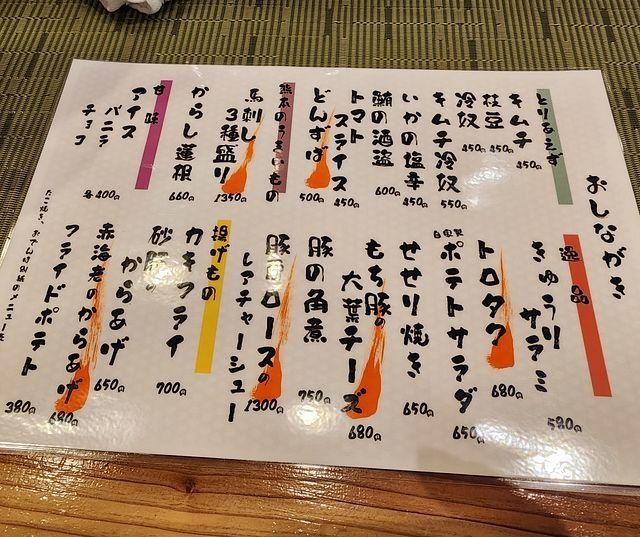 おしながき
とりあえず
キムチ 450円
枝豆 450円
冷奴 450円
キムチ冷奴 550円
いかの塩辛 450円
鮪の酒盗 600円
トマトスライス 450円
どんずば 500円
熊本のうまいもの
馬刺し3種盛り 1350円
からし蓮根 660円
甘味
アイス
バニラ
チョコ
各400円
逸品
きゅうりサラミ 580円
トロタク 680円
自家製ポテトサラダ 650円
せせり焼き 650円
もち豚の大葉チーズ 680円
豚の角煮 750円
豚肩ロースのレアチャーシュー 1300円
揚げもの
カキフライ 700円
砂肝のからあげ 650円
赤海老のからあげ 680円
フライドポテト 380円
たこ焼き、おでん